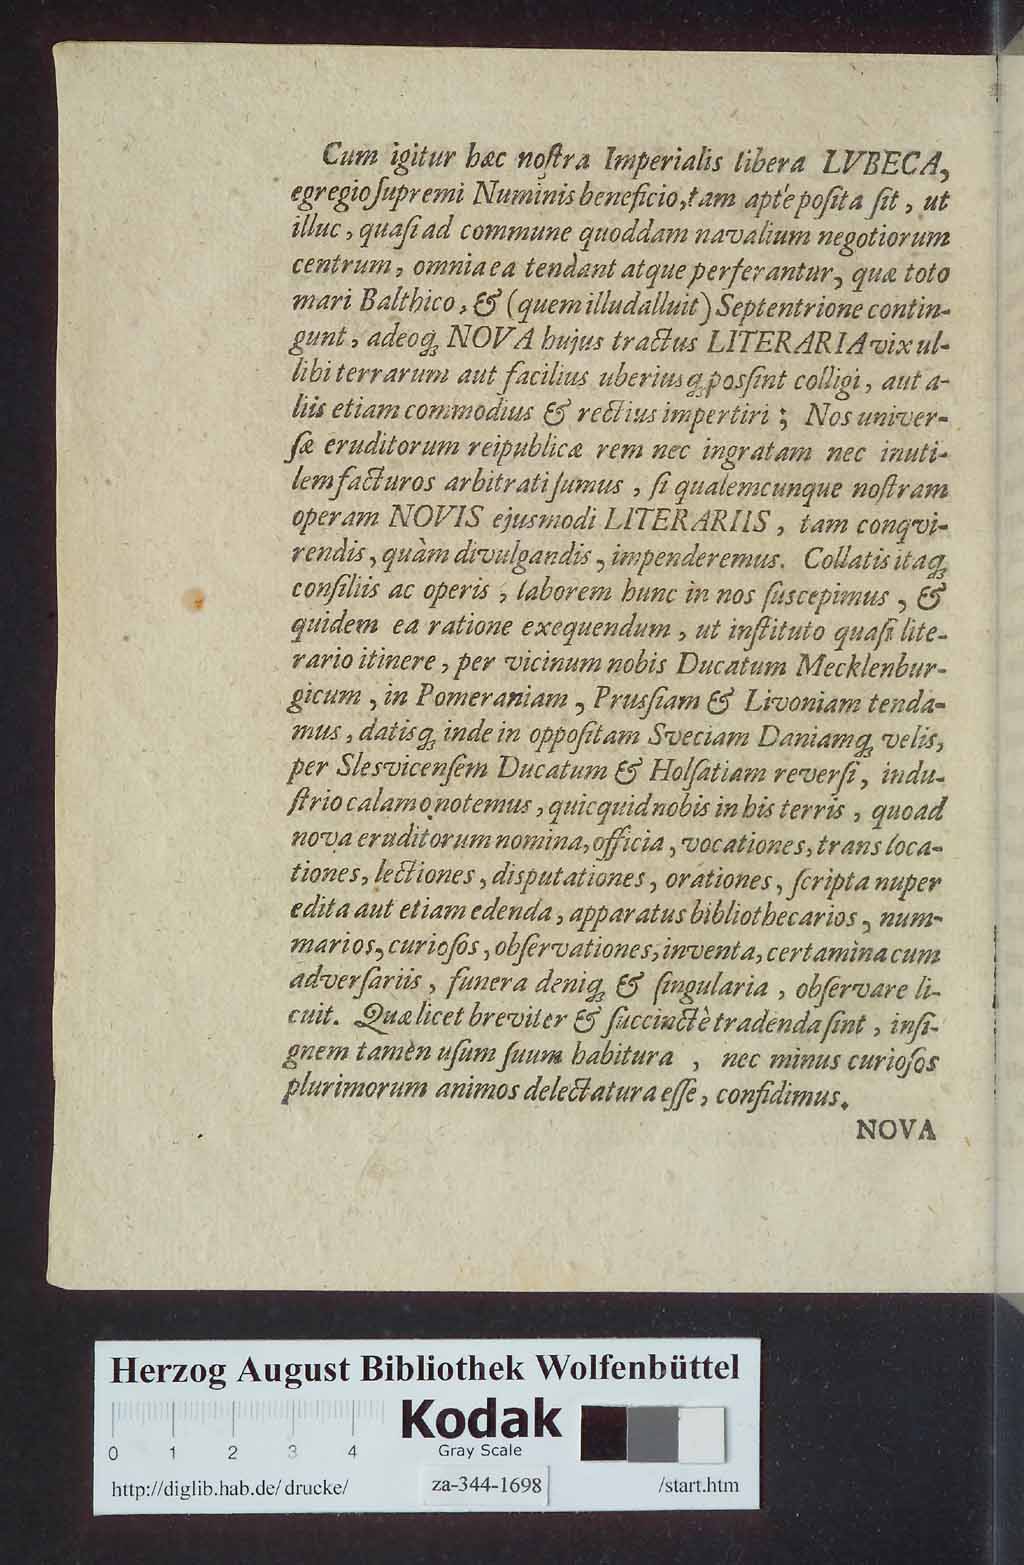 Cum igitur hæc noſtra Imperialis libera LVBECA,
egregio ſupremi Numinis beneficio, tam aptè poſita ſit, ut
illuc, quaſi ad commune quoddam navalium negotiorum
centrum, omnia ea tendant atque perferantur, quæ toto
mari Balthico, & (quem illud alluit) Septentrione contin-
gunt, adeoq; NOVA hujus tractus LITERARIA vix ul-
libi terrarum aut facilius uberiusq; posſint colligi, aut a-
liis etiam commodius & rectius impertiri; Nos univer-
ſæ eruditorum reipublicæ rem nec ingratam nec inuti-
lem facturos arbitrati ſumus, ſi qualemcunque noſtram
operam NOVIS ejusmodi LITERARIIS, tam conqvi-
rendis, quàm divulgandis, impenderemus. Collatis itaq;
conſiliis ac operis, laborem hunc in nos ſuscepimus, &
quidem ea ratione exequendum, ut inſtituto quaſi lite-
rario itinere, per vicinum nobis Ducatum Mecklenbur-
gicum, in Pomeraniam, Prusſiam & Livoniam tenda-
mus, datisq; inde in oppoſitam Sveciam Daniamq; velis,
per Slesvicenſem Ducatum & Holſatiam reverſi, indu-
ſtrio calamo notemus, quicquid nobis in his terris, quoad
nova eruditorum nomina, officia, vocationes, transloca-
tiones, lectiones, disputationes, orationes, ſcripta nuper
edita aut etiam edenda, apparatus bibliothecarios, num-
marios, curioſos, obſervationes, inventa, certamina cum
adverſariis, funera deniq; & ſingularia, obſervare li-
cuit. Quæ licet breviter & ſuccinctè tradenda ſint, inſi-
gnem tamèn uſum ſuum habitura, nec minus curioſos
plurimorum animos delectatura eſſe, confidimus.
NOVA
Herzog August Bibliothek Wolfenbüttel
Kodak
Gray Scale
0 1 2 3 4
http://diglib.hab.de/drucke/ za-344-1698 /start.htm